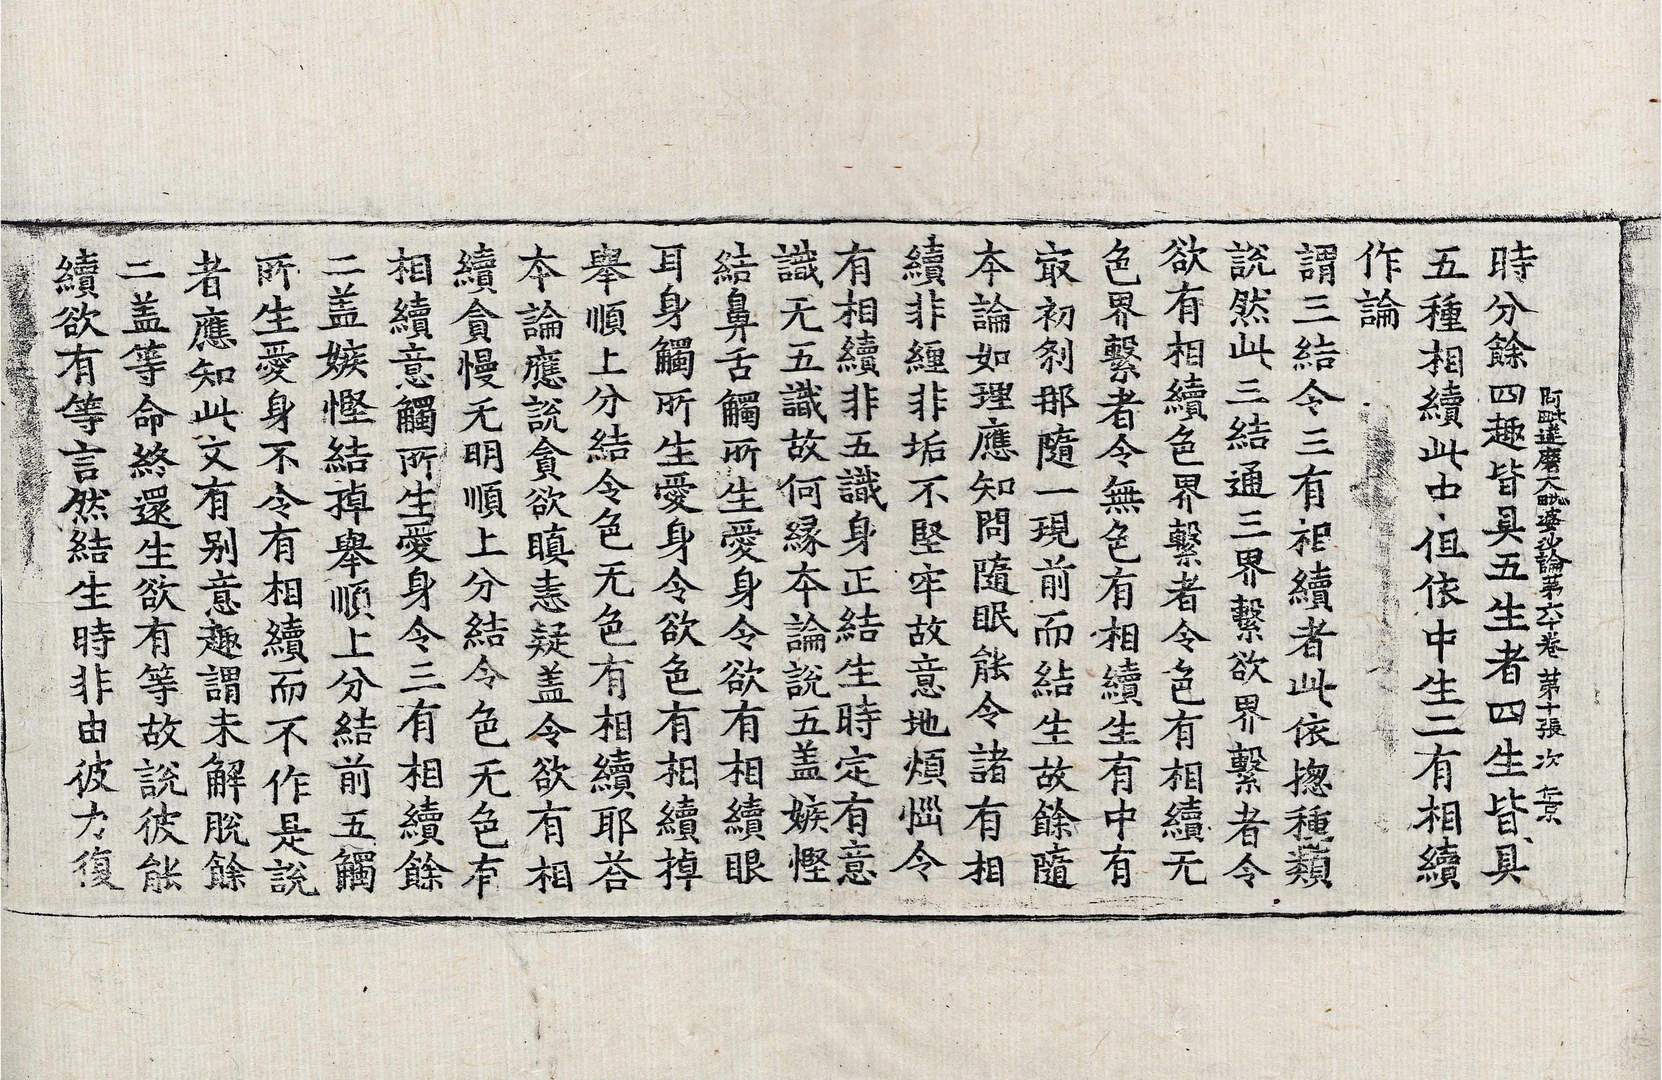 時分餘四趣皆具五生者四生皆具
阿毗達磨大毗婆沙論第六十卷 第十張 次
五種相續此中但依中生二有相續
作論
謂三結令三有相續者此依揔種類
說然此三結通三界繫欲界繫者令
欲有相續色界繫者令色有相續无
色界繫者令無色有相續生有中有
㝡初刹那隨一現前而結生故餘隨
本論如理應知問隨眠能令諸有相
續非纏非垢不堅牢故意地煩惱令
有相續非五識身正結生時定有意
識无五識故何緣本論說五盖嫉慳
結鼻舌觸所生愛身令欲有相續眼
耳身觸所生愛身令欲色有相續掉
舉順上分結令色无色有相續耶荅
本論應說貪欲瞋恚疑盖令欲有相
續貪慢无明順上分結令色无色有
相續意觸所生愛身令三有相續餘
二盖嫉慳結掉舉順上分結前五觸
所生愛身不令有相續而不作是說
者應知此文有别意趣謂未解脫餘
二盖等命終還生欲有等故說彼能
續欲有等言然結生時非由彼力復